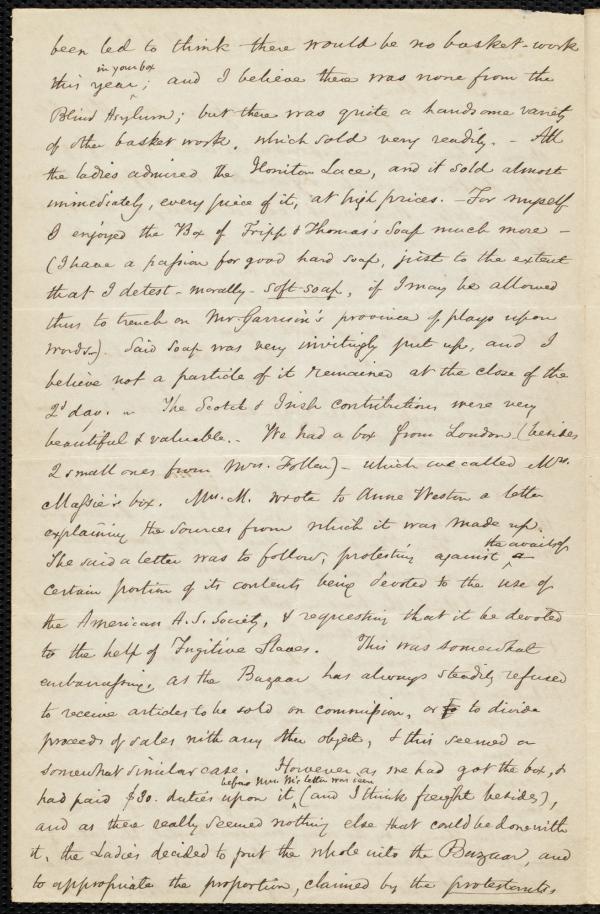 been led to think there would be no basket-work
in your box
this year; and I believe there was none from the
Blind Asylum; but there was quite a handsome variety
of other basket work, which sold very readily. - All
the ladies admired the Honiton Lace, and it sold almost
immediately, every piece of it, at high prices. - For myself
I enjoyed the Box of Fripp & Thomas's Soap much more -
(I have a passion for good hard soap, just to the extent
that I detest - morally - soft-soap, if I may be allowed
thus to trench on Mr Garrison's province of plays upon
words.) Said soap was very invitingly put up, and I
believe not a particle of it remained at the close of the
2d day. - The Scotch & Irish contributions were very
beautiful & valuable. - We had a box from London (besides
2 small ones from Mrs. Follen) - which we called Mrs.
Massie's box. Mrs. M. wrote to Anne Weston a letter
explaining the sources from which it was made up.
the avails of
She said a letter was to follow, protesting against a
certain portion of its contents being devoted to the use of
the American A. S. Society, & requesting that it be devoted
to the help of Fugitive Slaves. This was somewhat
embarrassing, as the Bazaar has always steadily refused
to receive articles to be sold on commission, or to to divide
proceeds of sales with any other object, & this seemed a
somewhat similar case. However, as we had got the box, &
before Mrs. M's letter was seen
had paid $30. duties upon it, (and I think freight besides),
and as there really seemed nothing else that could be done with
it, the Ladies decided to put the whole into the Bazaar, and
to appropriate the proportion, claimed by the protestants,